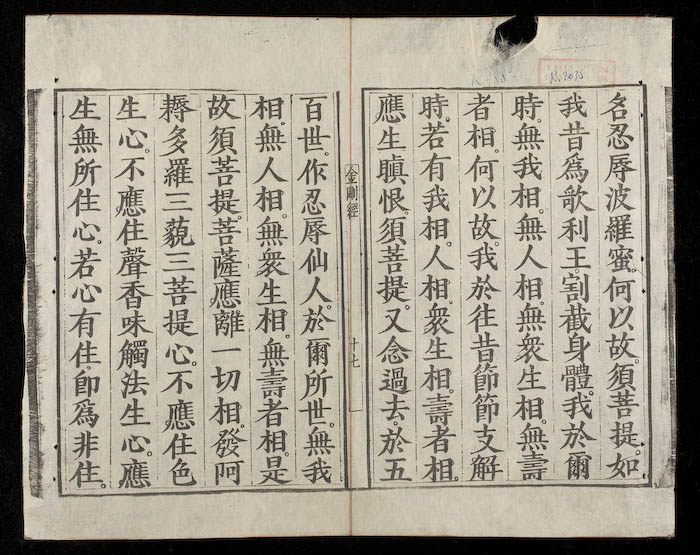 名忍辱波羅蜜。何以故。須菩提。如
我昔爲歌利王。割截身體。我於爾
時。無我相。無人相。無衆生相。無壽
者相。何以故。我於往昔節節支解
時。若有我相。人相。衆生相。壽者相。
應生瞋恨。須菩提。又念過去。於五
金剛經
十七
百世。作忍辱仙人。於爾所世。無我
相。無人相。無衆生相。無壽者相。是
故須菩提。菩薩應離一切相。發阿
耨多羅三藐三菩提心。不應住色
生心。不應住聲香味觸法生心。應
生無所住心。若心有住。卽爲非住。